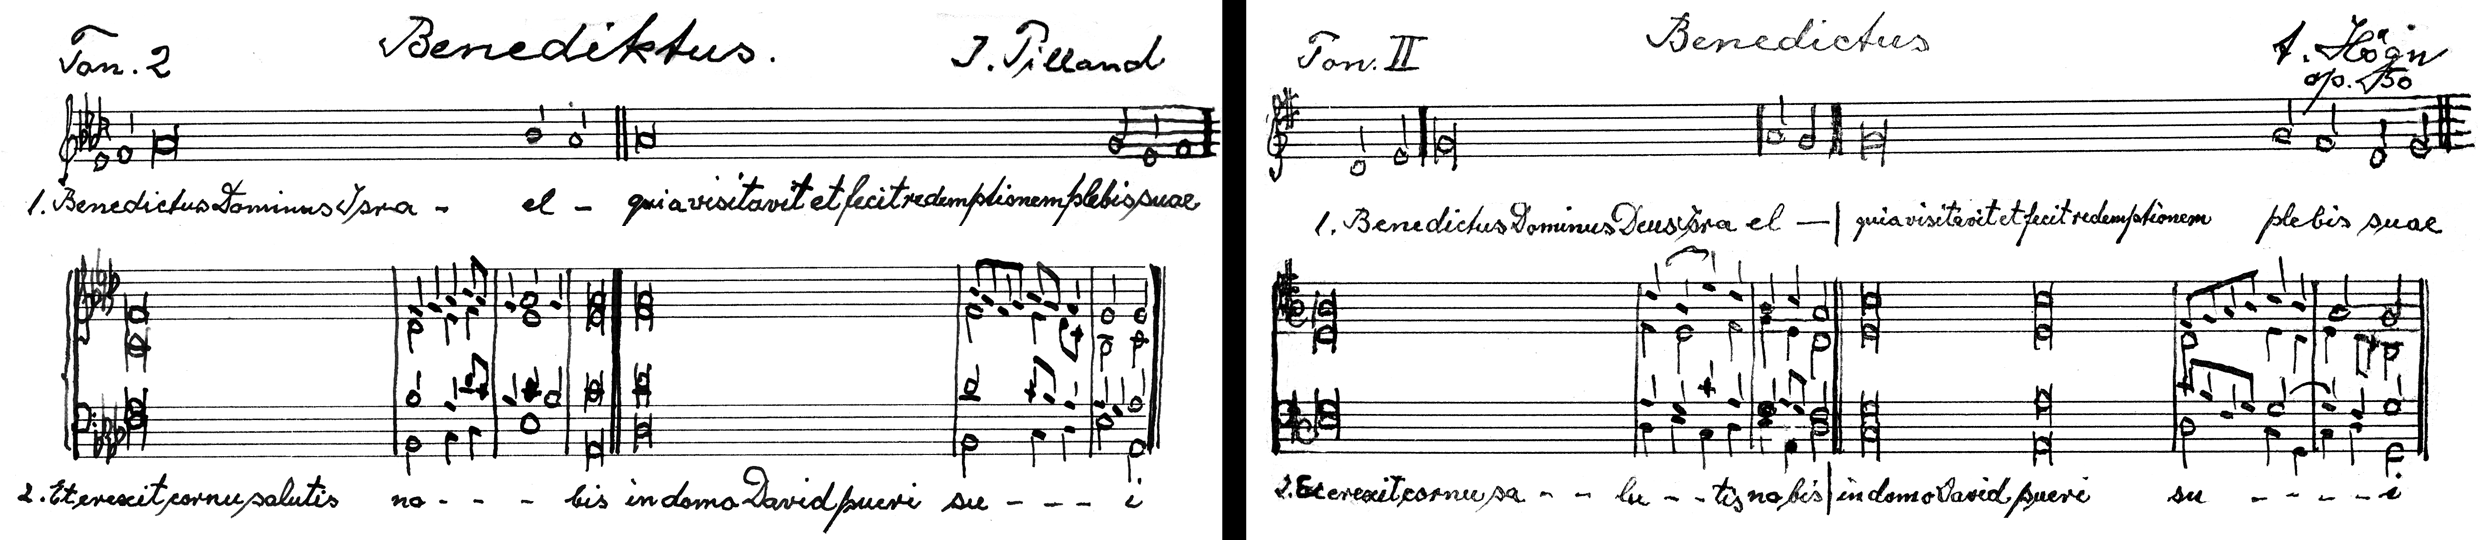 Benediktus.
Ton. 2
J. Pilland
1. Benedictus Dominus Isra - el - quia visitavit et fecit redemptionem plebis suae
2. Et erexit cornu salutis no - - - bis in domo David pueri su - - - i
Benedictus
Ton. II
A. Högn
op. 50
1. Benedictus Dominus Deus Isra el - | quia visitavit et fecit redemptionem plebis suae
2. Et erexit cornu sa - - lu - - tis no bis | in domo David pueri su - - - - i